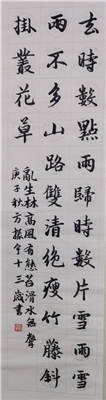 去時數點雨歸時數片雪雨雪
兩不多山路雙清絕瘦竹藤斜
掛叢花草
亂生林高風有態苔滑水無聲
庚子秋方振十三歲書